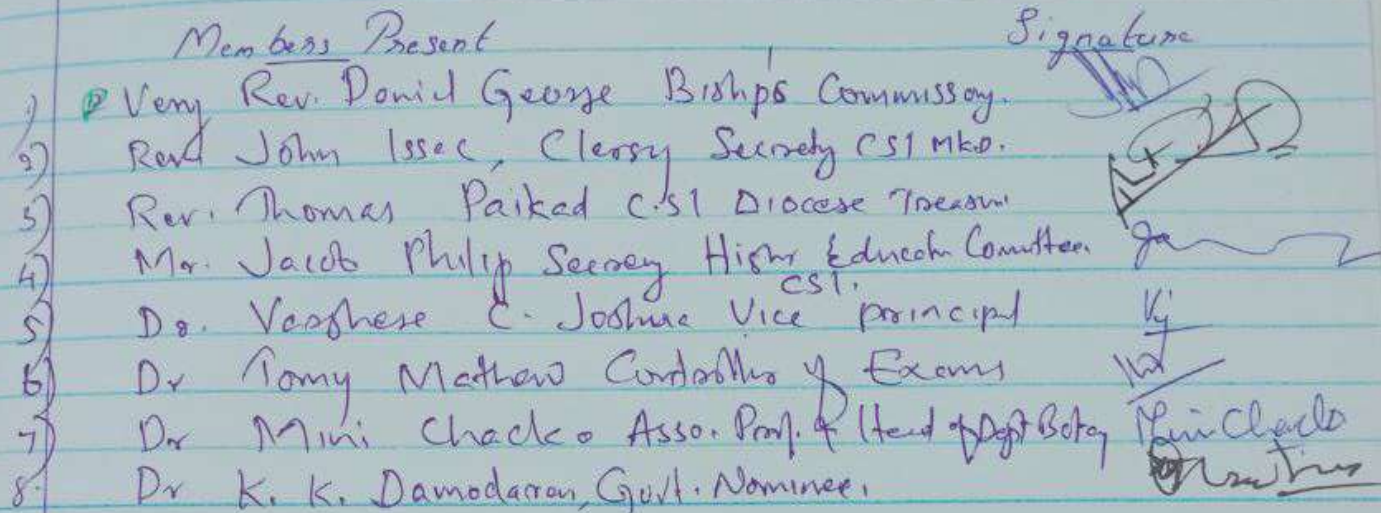 Members Present Signature
1) Very Rev. Daniel George Bishop's Commissory.
2) Revd John Issac, Clergy Secretery CSI MKD.
3) Rev. Thomas Paikad C.S1 Diocese Treasurer
4) Mr. Jacob Philip Secretary Higher Education Committee. CSI.
5) Dr. Varghese C. Joshua Vice principal Vj
6) Dr Tomy Mathew Controller of Exams
7) Dr Mini Chacko Asso. Prof. & Head of Dept Botany Mini Chacko
8. Dr K. K. Damodaran, Govt. Nominee.